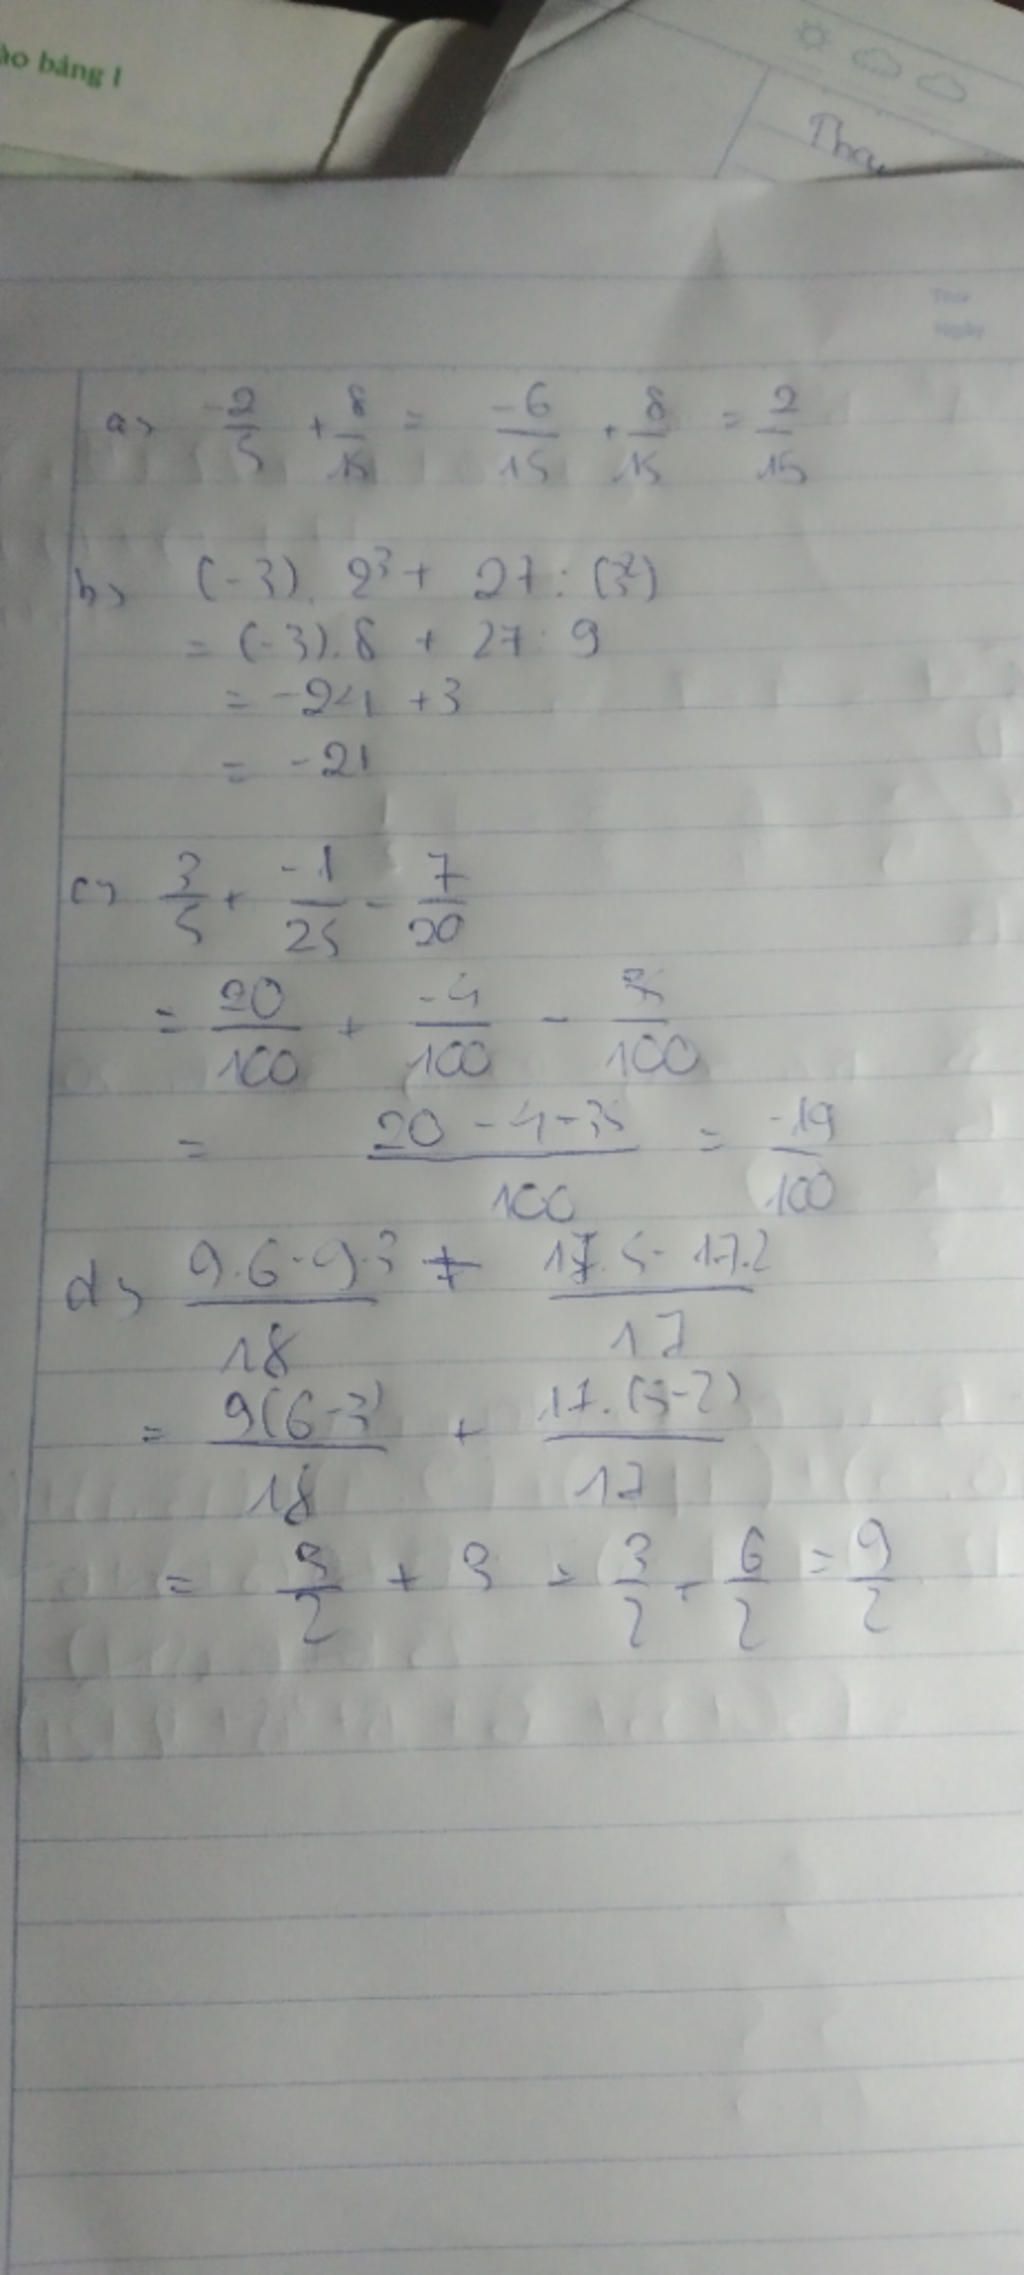 ào bảng 1
Thứ
Ngày
a> -2/5 + 8/15 = -6/15 + 8/15 = 2/15
b> (-3). 2³ + 27 : (3²)
= (-3).8 + 27 : 9
= -24 + 3
= -21
c> 3/5 + -1/25 - 7/20
= 20/100 + -4/100 - 35/100
= 20 - 4 - 35/100 = -19/100
d> 9.6 - 9.3/18 + 17.5 - 17.2/17
= 9(6-3)/18 + 17.(5-2)/17
= 3/2 + 3 = 3/2 + 6/2 = 9/2